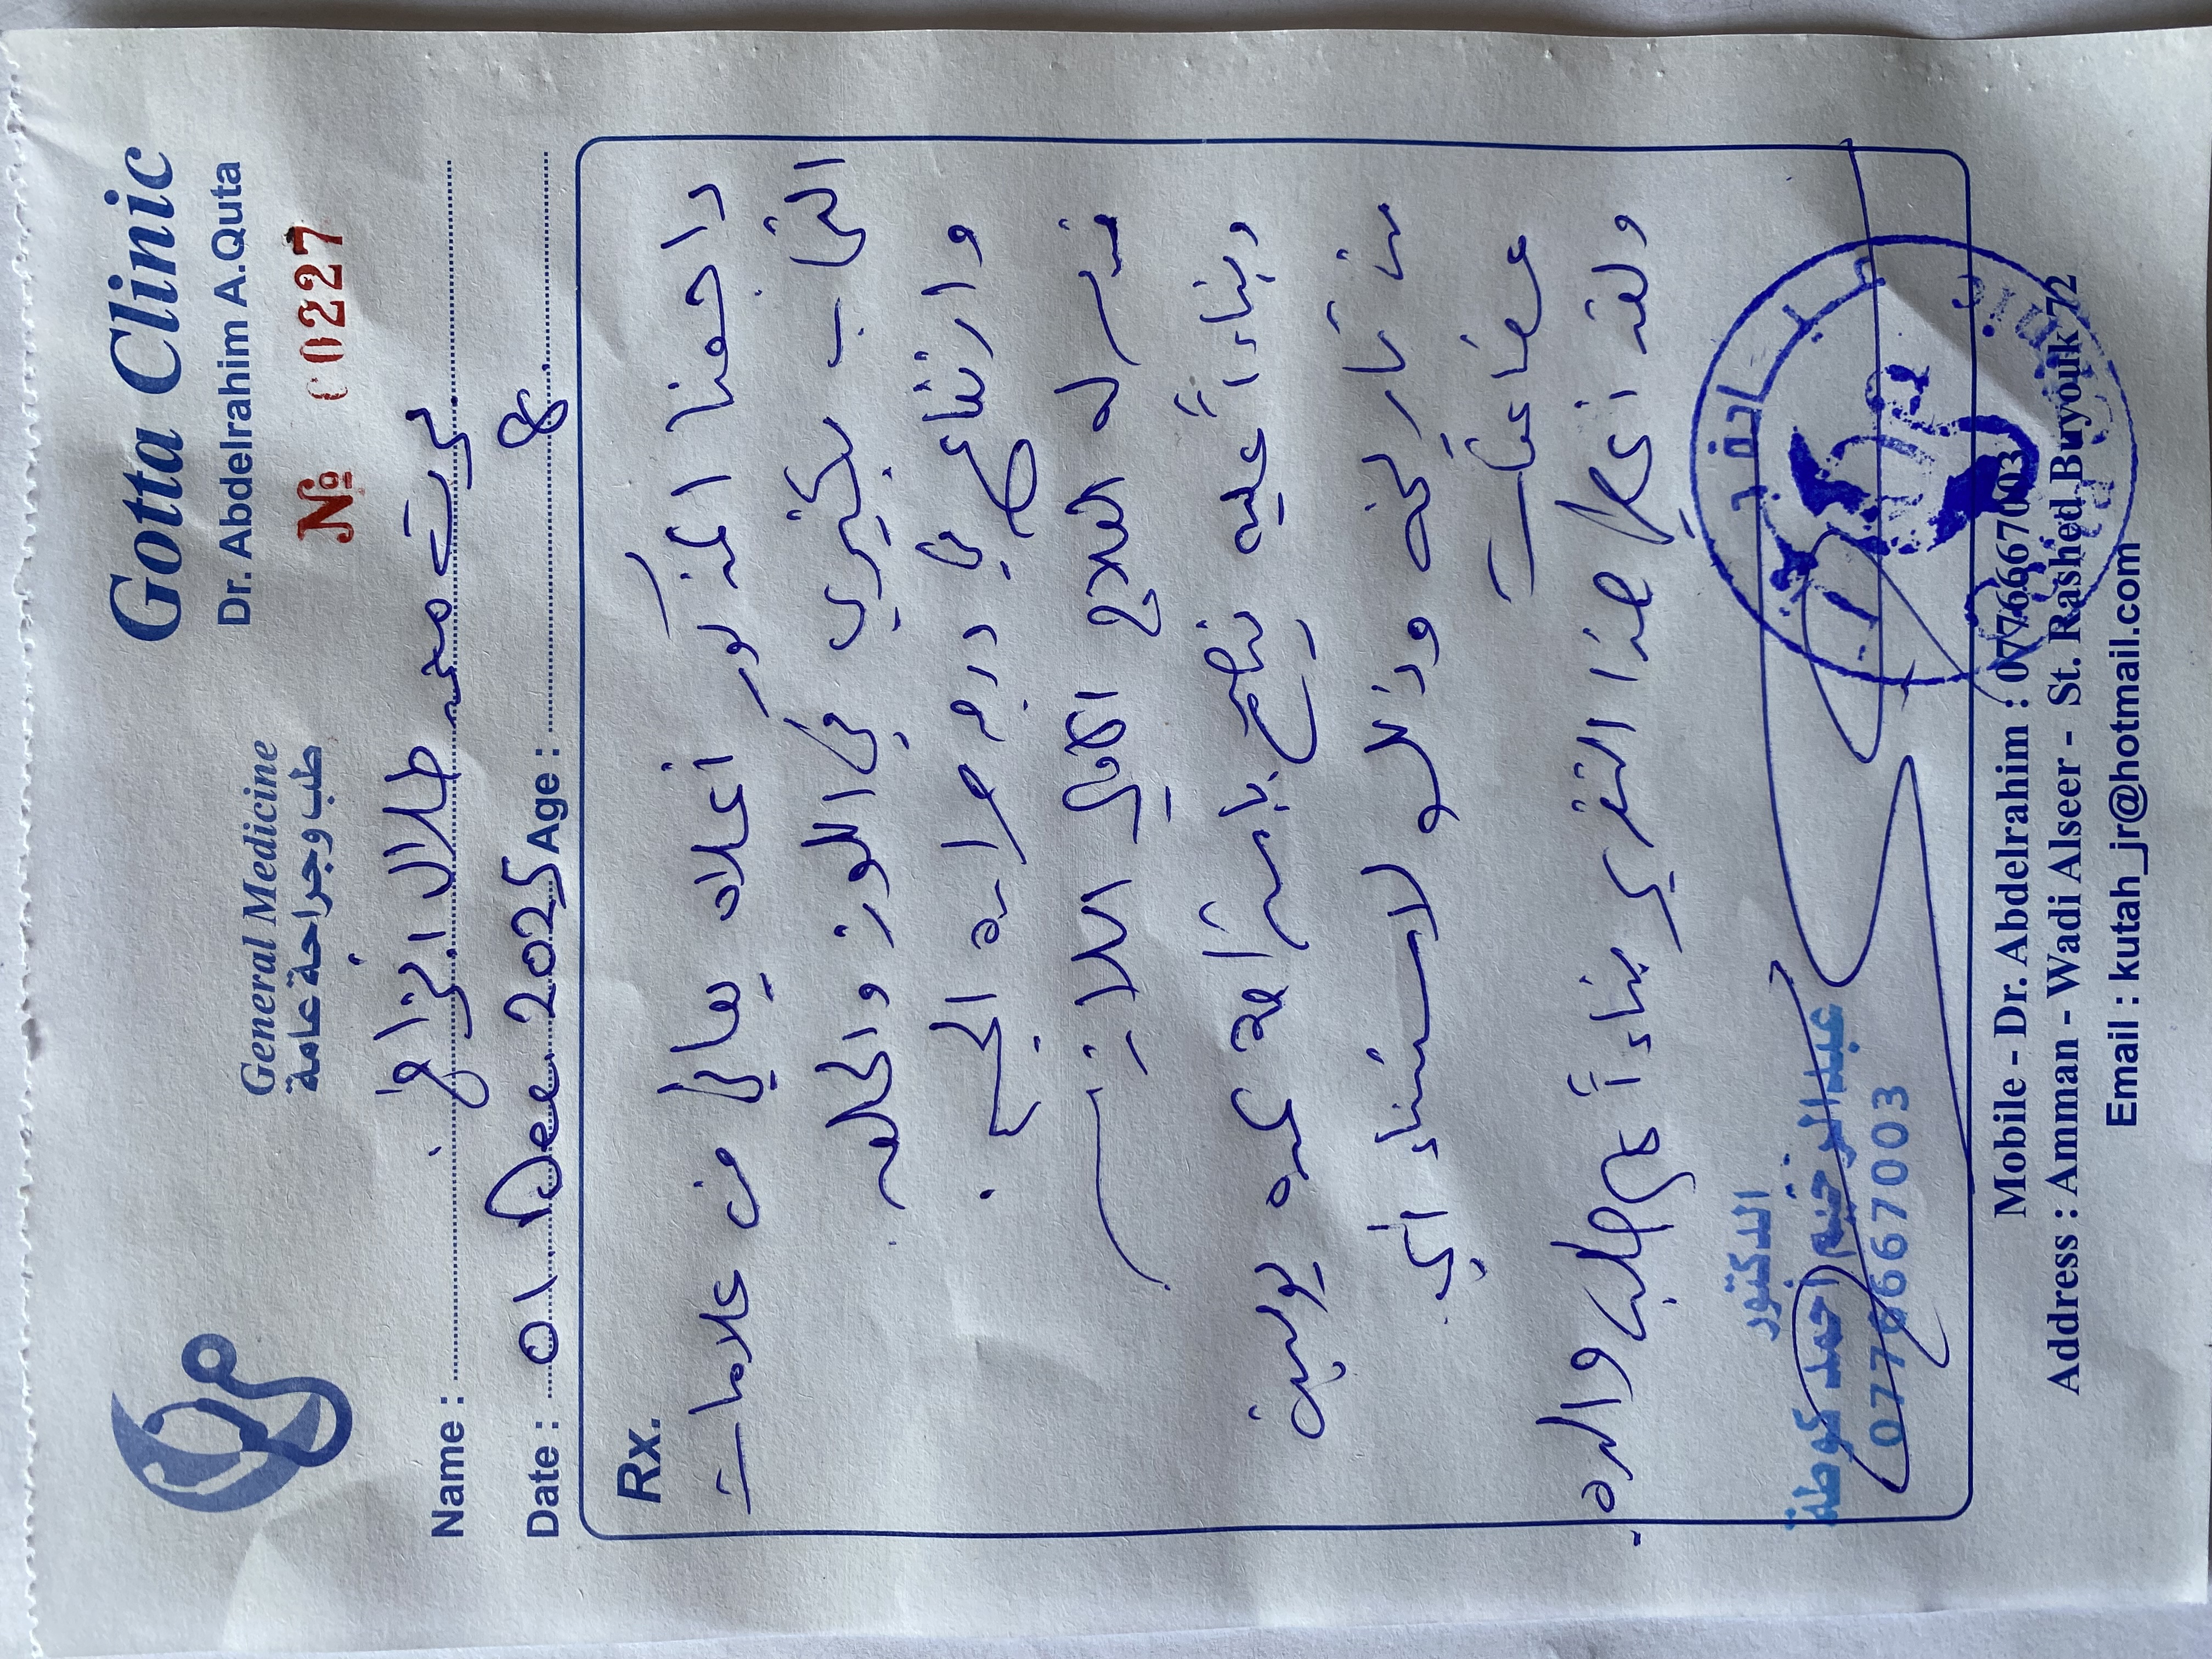 Gotta Clinic
Dr. Abdelrahim A.Quta
General Medicine
طب وجراحة عامة
№ 00227
Name : محمد طلال
Date : 01 Dec 2025 Age : 8
Rx.
راجعنا المذكور أعلاه يعاني من علامات
التهاب بكتيري في اللوز والحلق
وارتفاع في درجة حرارة الجسم.
صرف له العلاج اللازم
وبناءاً عليه ينصح باستراحة لمدة يومين
من تاريخه وذلك لاستثناء أي
مضاعفات
ولقد أعطي هذا التقرير بناءاً على طلب والده.
الدكتور
عبدالرحيم أحمد كوطة
0776667003
Mobile - Dr. Abdelrahim : 0776667003
Address : Amman - Wadi Alseer - St. Rashed Buryouk 72
Email : kutah_jr@hotmail.com